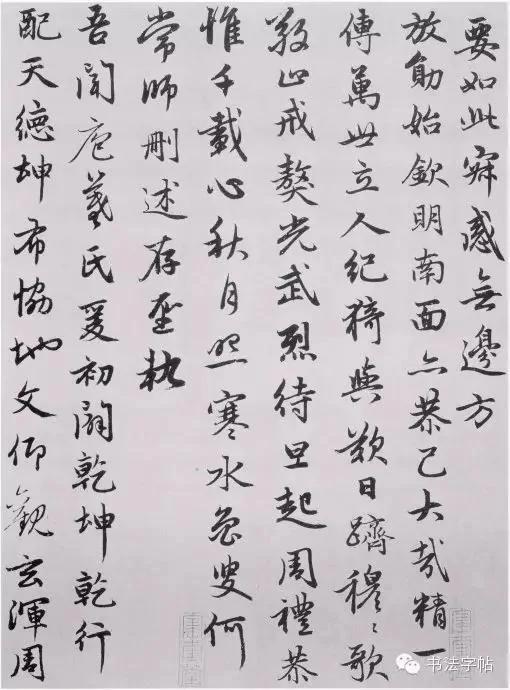 要如此寂感無邊方
放勛始欽明南面亦恭己大哉精一
傳萬世立人紀猗與歎日躋穆〻歌
敬止戒獒光武烈待旦起周禮恭
惟千載心秋月照寒水魯叟何
常師刪述存聖軌
吾聞庖羲氏爰初闢乾坤乾行
配天德坤布協地文仰觀玄渾周
书法字帖